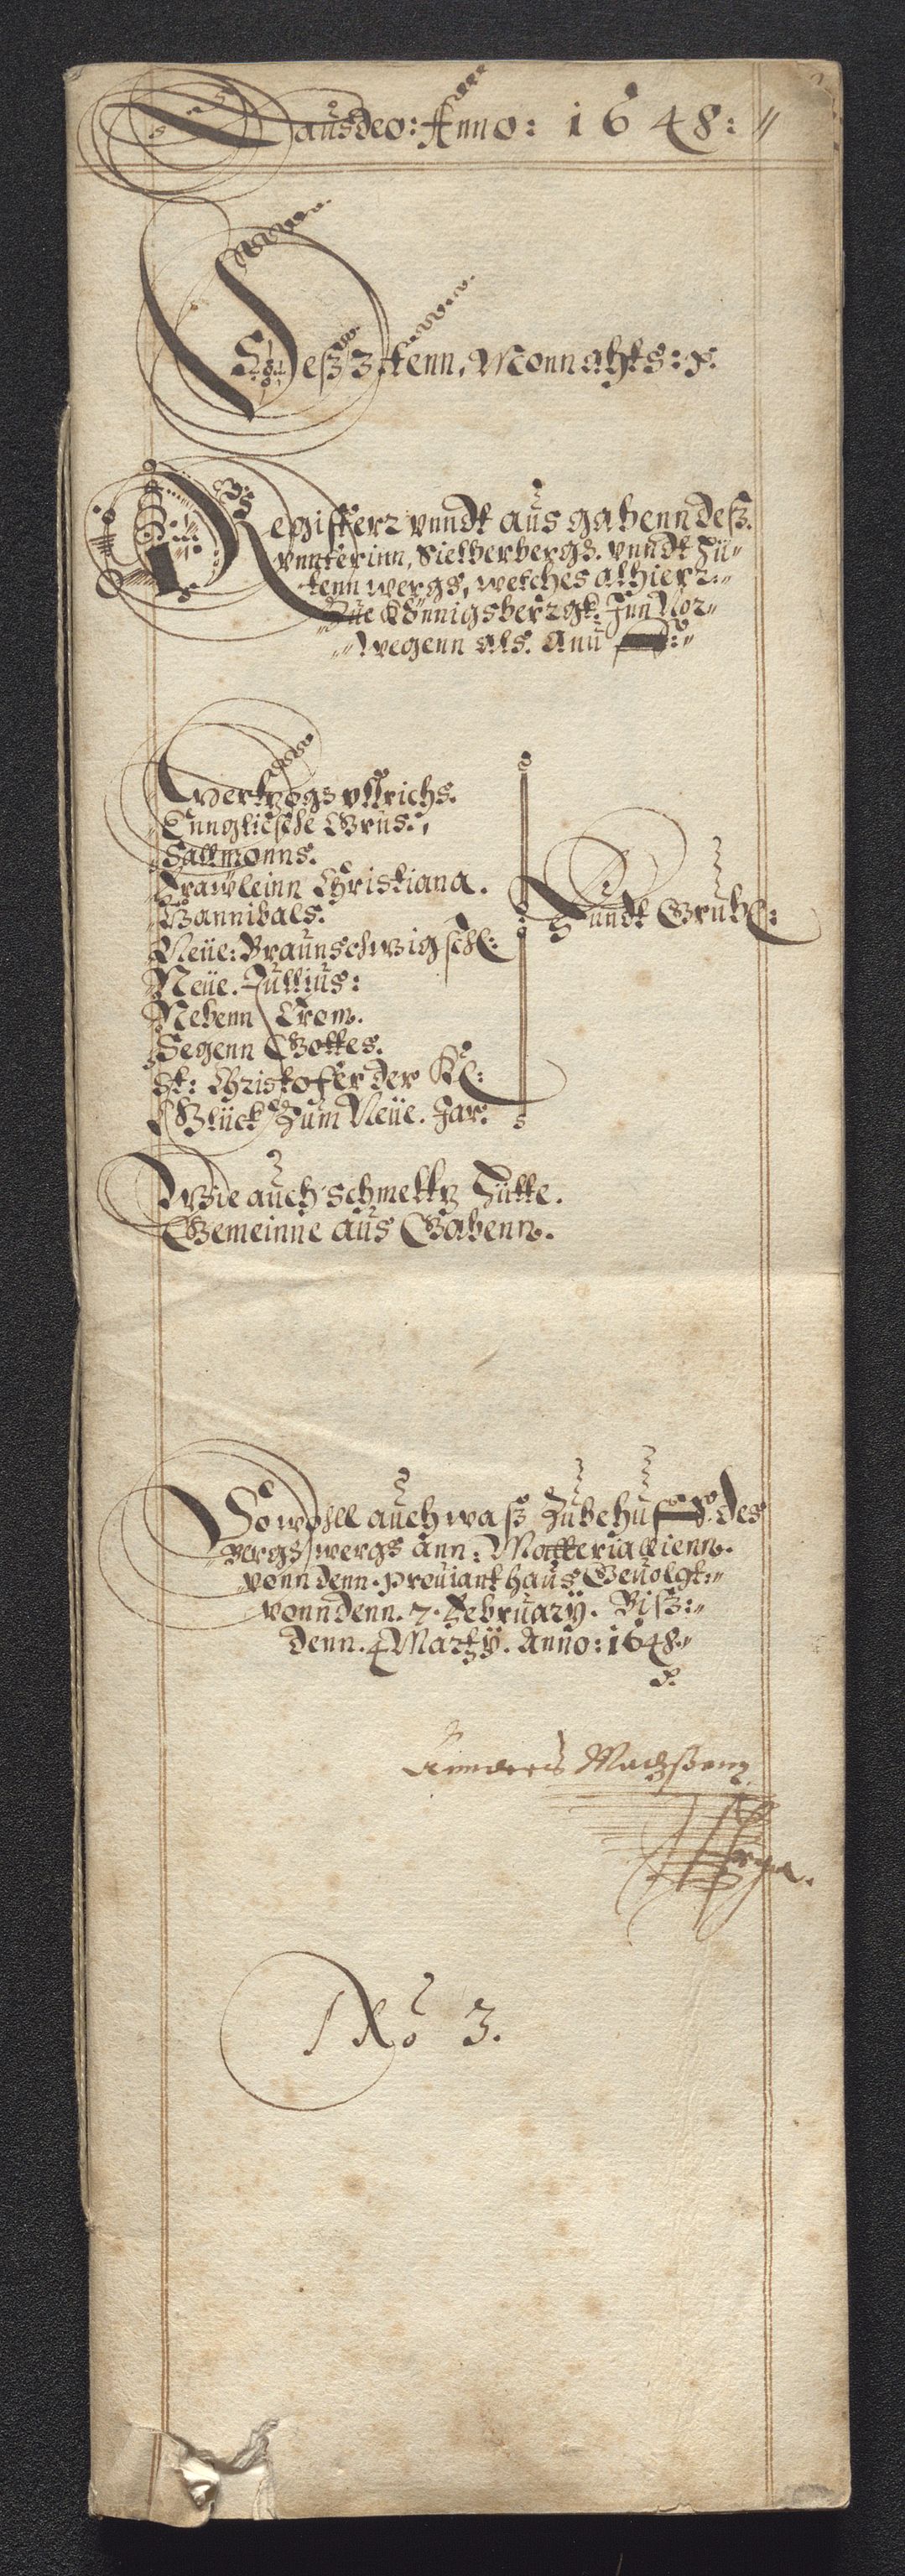 Laus deo: Anno: 1648:
Deß 3tenn, Monnahts: p.
Registerr vnndt ausgabenn deß.
vnnterinn, Sielberbergs. vnndt Hü"
tenn wergs, welches alhierr:"
Zue Könnigsberrgk. Jnn Nor"
"wegenn als. Ann
Hertzogs vllrichs.
Снngliesche Grus.,
Sallmonns.
Frawleinn Christiana.
Hannibals.
Fundt Grube:
Neüe: Braunschwigsche:
Neüe. Jullius:
Nebenn Crom.
Segenn Gottes.
St: Christoffer der Kl:
Glück Zum Neüe. Jar.
Wie auch schmeltz Hütte.
Gemeinne aus Gabenn.
So wohll auch waß Zubehuf des
Bergs wergs ann: Matteriallienn.
vonn denn. proviant haus Gevolgt:"
vonn denn. 7. February. Biß:"
denn. 4 Martzy. Anno: 1648."
p.
Anders Madzßenn
No 3.